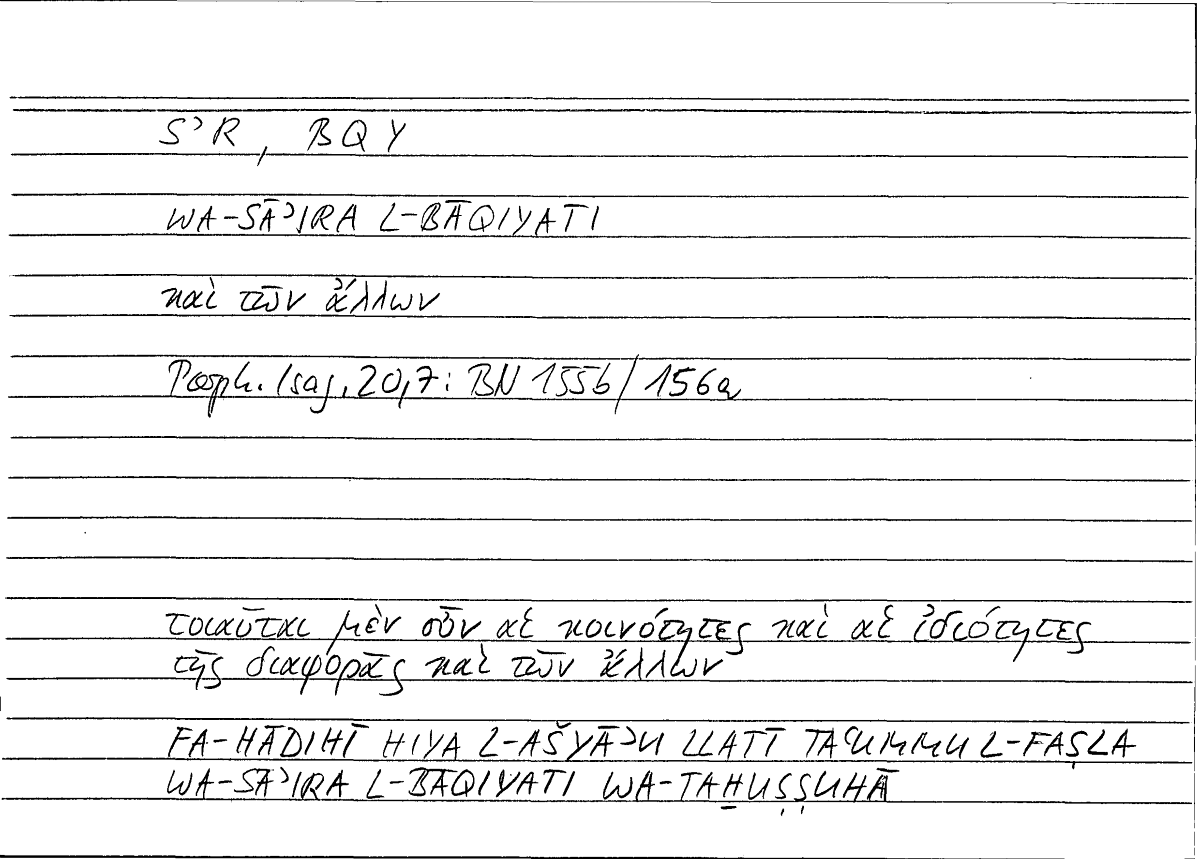 SʾR, BQY
WA-SĀʾIRA L-BĀQIYATI
καὶ τῶν ἄλλων
Porph. Isag. 20,7: BN 155b/156a
τοιαῦται μὲν οὖν αἱ κοινότητες καὶ αἱ ἰδιότητες
τῆς διαφορᾶς καὶ τῶν ἄλλων
FA-HĀDIHĪ HIYA L-AŠYĀʾU LLATĪ TAʿUMMU L-FAṢLA
WA-SĀʾIRA L-BĀQIYATI WA-TAḪUṢṢUHĀ